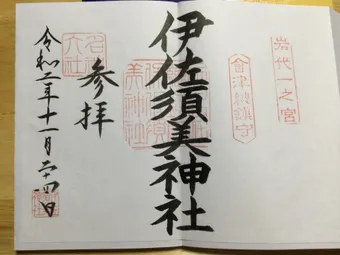 岩代一之宮
会津総鎮守
伊佐須美神社
参拝
名神大社
令和二年十一月二十四日